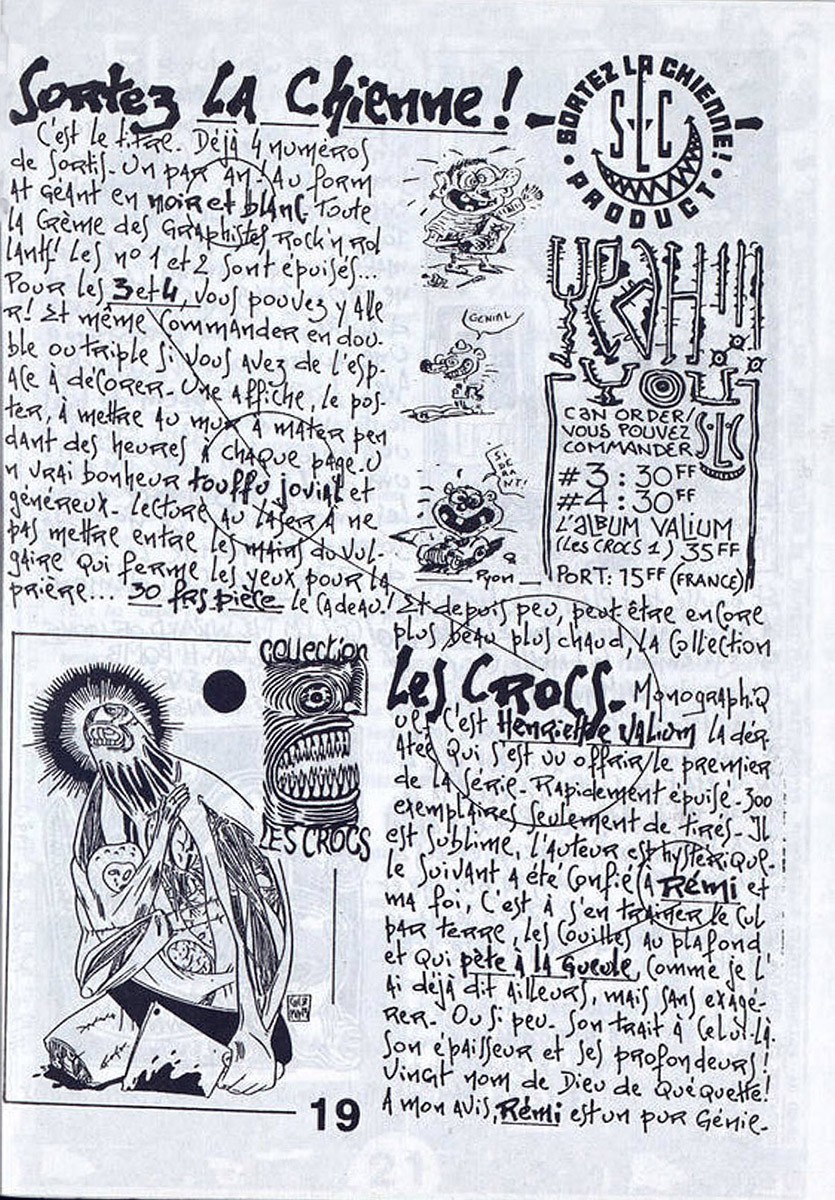 Sortez LA Chienne !
SORTEZ LA CHIENNE! • PRODUCT •
SLC
C'est le titre. Déjà 4 numéros
de sortis. Un par an. Au form
at géant en noir et blanc. Toute
la Crème des Graphistes Rock'n Rol
lants! Les n° 1 et 2 sont épuisés...
Pour les 3 et 4, vous pouvez y alle
r! Et même commander en dou-
ble ou triple si vous avez de l'esp-
ace à décorer. Une affiche, le pos-
ter, à mettre au mur à mater pen
dant des heures à chaque page. U
n vrai bonheur touffu jovial et
généreux. Lecture au laser à ne
pas mettre entre les mains du vul-
gaire qui ferme les yeux pour la
prière... 30 frs pièce le cadeau!
GENIAL
Pyon
CAN ORDER/
VOUS POUVEZ
COMMANDER SLC
#3 : 30FF
#4 : 30FF
L'ALBUM VALIUM
(LES CROCS 1) 35FF
PORT: 15FF (FRANCE)
Et depuis peu, peut être encore
plus beau plus chaud, la Collection
Les CROCS. Monographiq
ue. C'est Henriette Valium la dér
atée qui s'est vu offrir le premier
de la série. Rapidement épuisé. 300
exemplaires seulement de tirés. Il
est sublime, l'auteur est hystérique.
le suivant a été confié à Rémi et
ma foi, c'est à s'en traîner le cul
par terre, les couilles au plafond
et qui pète à la gueule, comme je l'
ai déjà dit ailleurs, mais sans exagé-
rer. Ou si peu. Son trait à celui-là.
Son épaisseur et ses profondeurs!
Vingt nom de Dieu de Quéquette!
A mon avis, Rémi est un pur Génie.
collection
LES CROCS
19
21